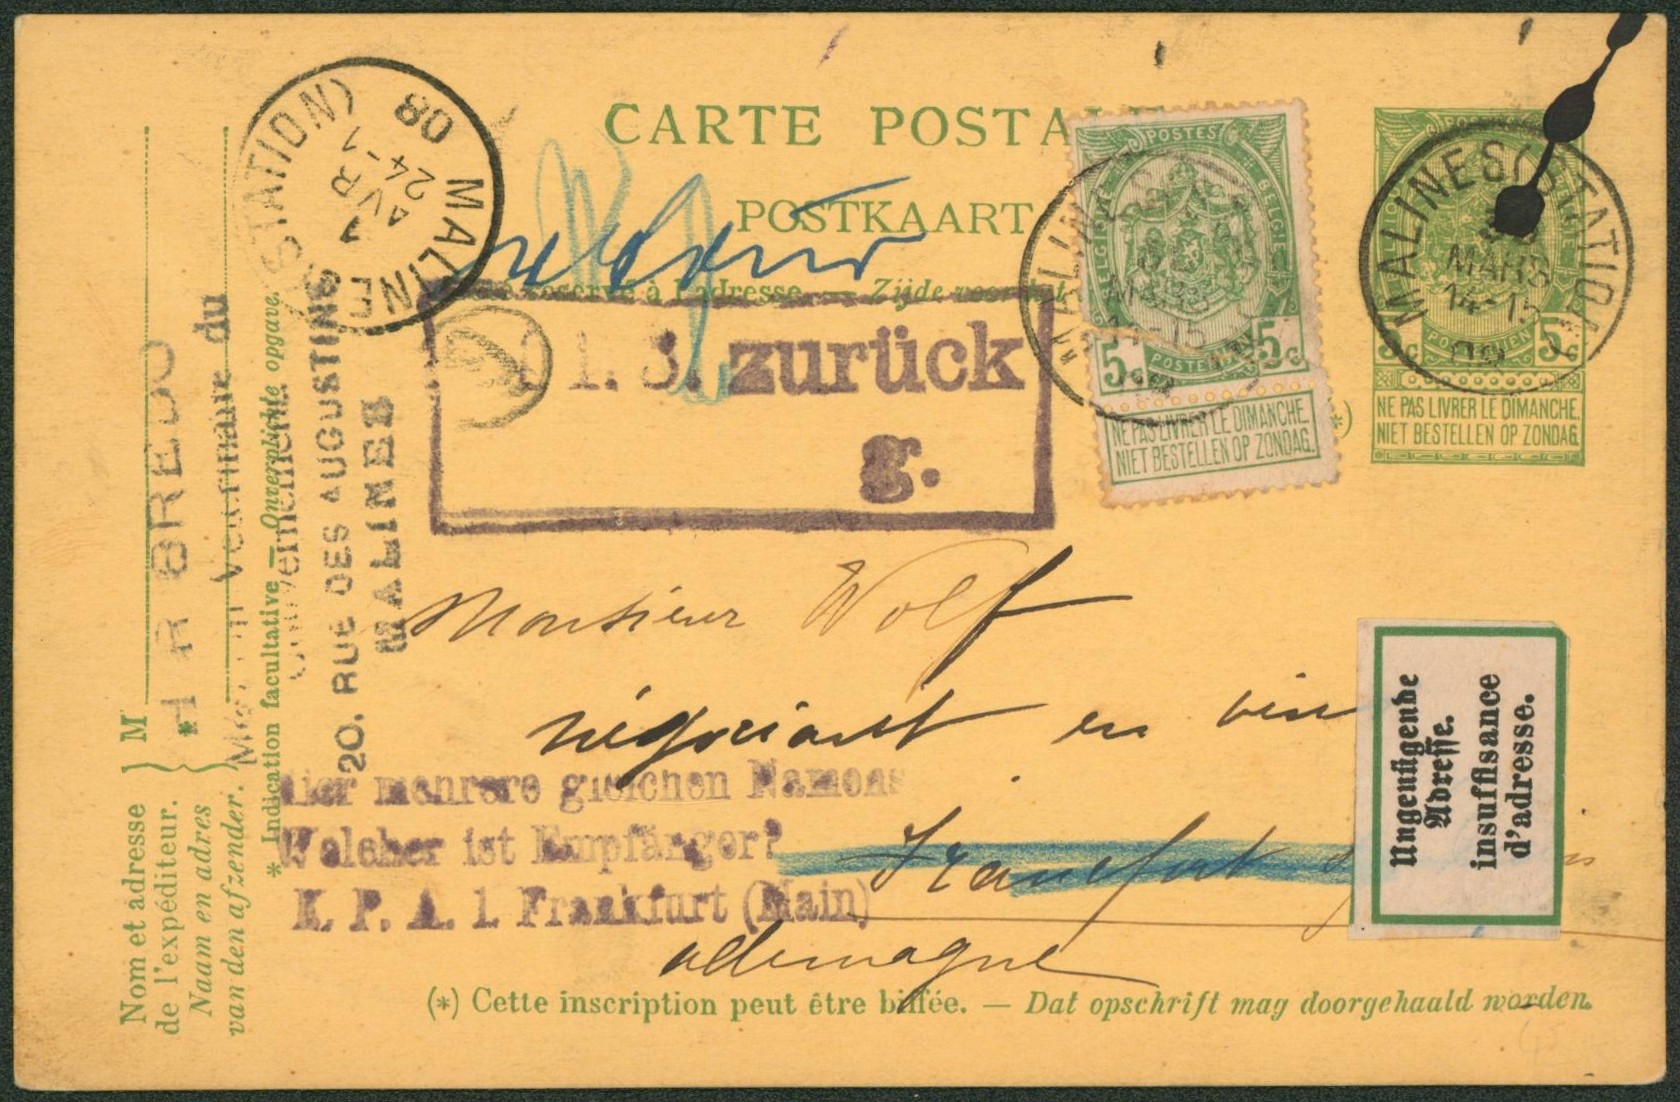 CARTE POSTALE
POSTKAART
retour
Zijde
MALINES (STATION)
1 AVR
24-1
08
POSTES
BELGIQUE
BELGIË
5c 5c
POSTERIJEN
NE PAS LIVRER LE DIMANCHE.
NIET BESTELLEN OP ZONDAG.
MALINES (STATION)
MARS
14-15
08
5c
NE PAS LIVRER LE DIMANCHE.
NIET BESTELLEN OP ZONDAG.
zurück
g.
Monsieur Wolf
négociant en vin
Francfort
allemagne
hier mehrere gleichen Namens
Welcher ist Empfänger?
K. P. A. 1 Frankfurt (Main)
Ungenügende
Adresse.
insuffisance
d'adresse.
Nom et adresse
de l'expéditeur.
Naam en adres
van den afzender.
M
* Indication facultative — Onverplichte opgave.
BREDO
Vétérinaire du
Gouvernement
20, RUE DES AUGUSTINS
MALINES
(*) Cette inscription peut être biffée. — Dat opschrift mag doorgehaald worden.